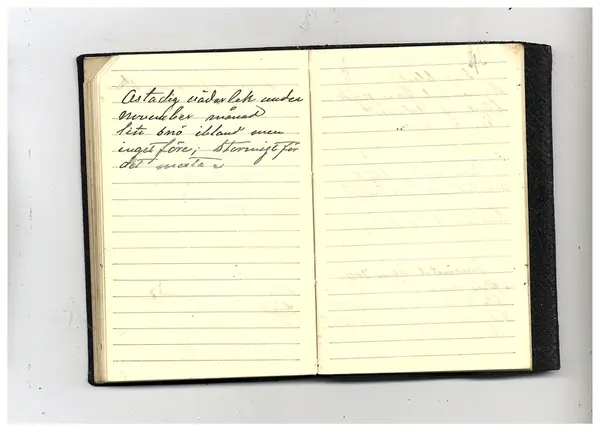 Ostadig väderlek under
november månad
lite snö ibland men
inget före; stormigt för
det mesta